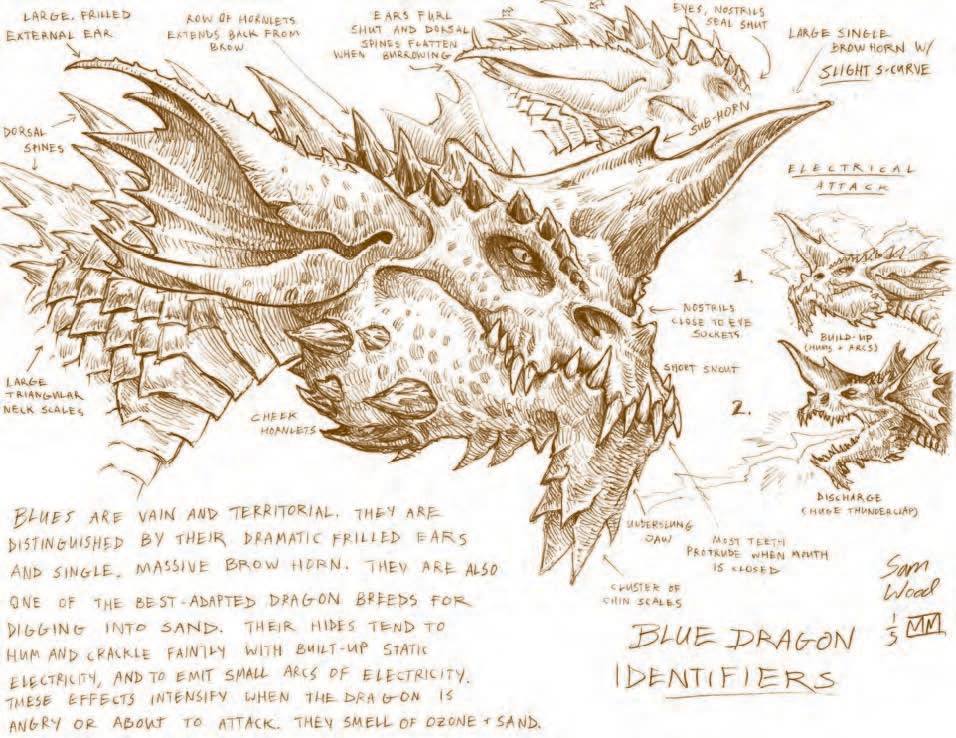 LARGE, FRILLED
EXTERNAL EAR
ROW OF HORNLETS
EXTENDS BACK FROM
BROW
EARS FURL
SHUT AND DORSAL
SPINES FLATTEN
WHEN BURROWING
EYES, NOSTRILS
SEAL SHUT
LARGE SINGLE
BROW HORN W/
SLIGHT S-CURVE
SUB-HORN
DORSAL
SPINES
ELECTRICAL
ATTACK
1.
BUILD-UP
(HUMS + ARCS)
NOSTRILS
CLOSE TO EYE
SOCKETS
SHORT SNOUT
2.
DISCHARGE
(HUGE THUNDERCLAP)
LARGE
TRIANGULAR
NECK SCALES
CHEEK
HORNLETS
UNDERSLUNG
JAW
MOST TEETH
PROTRUDE WHEN MOUTH
IS CLOSED
CLUSTER OF
CHIN SCALES
BLUES ARE VAIN AND TERRITORIAL. THEY ARE
DISTINGUISHED BY THEIR DRAMATIC FRILLED EARS
AND SINGLE, MASSIVE BROW HORN. THEY ARE ALSO
ONE OF THE BEST-ADAPTED DRAGON BREEDS FOR
DIGGING INTO SAND. THEIR HIDES TEND TO
HUM AND CRACKLE FAINTLY WITH BUILT-UP STATIC
ELECTRICITY, AND TO EMIT SMALL ARCS OF ELECTRICITY.
THESE EFFECTS INTENSIFY WHEN THE DRAGON IS
ANGRY OR ABOUT TO ATTACK. THEY SMELL OF OZONE + SAND.
BLUE DRAGON
IDENTIFIERS
Sam
Wood
1
5 MM